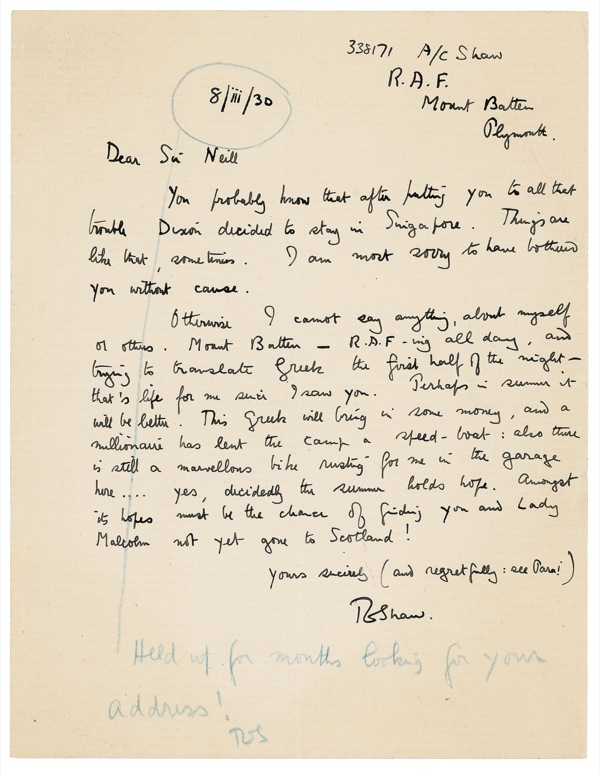 338171 A/C Shaw
R.A.F.
Mount Batten
Plymouth.
8/iii/30
Dear Sir Neill
You probably know that after putting you to all that
trouble Dixon decided to stay in Singapore. Things are
like that, sometimes. I am most sorry to have bothered
you without cause.
Otherwise I cannot say anything, about myself
or others. Mount Batten — R.A.F-ing all day, and
trying to translate Greek the first half of the night —
that's life for me since I saw you. Perhaps in summer it
will be better. This Greek will bring in some money, and a
millionaire has lent the camp a speed-boat: also there
is still a marvellous bike rusting for me in the garage
here.... yes, decidedly the summer holds hope. Amongst
its hopes must be the chance of finding you and Lady
Malcolm not yet gone to Scotland!
Yours sincerely (and regretfully: see Para 1)
TEShaw.
Held up for months looking for your
address!
TES